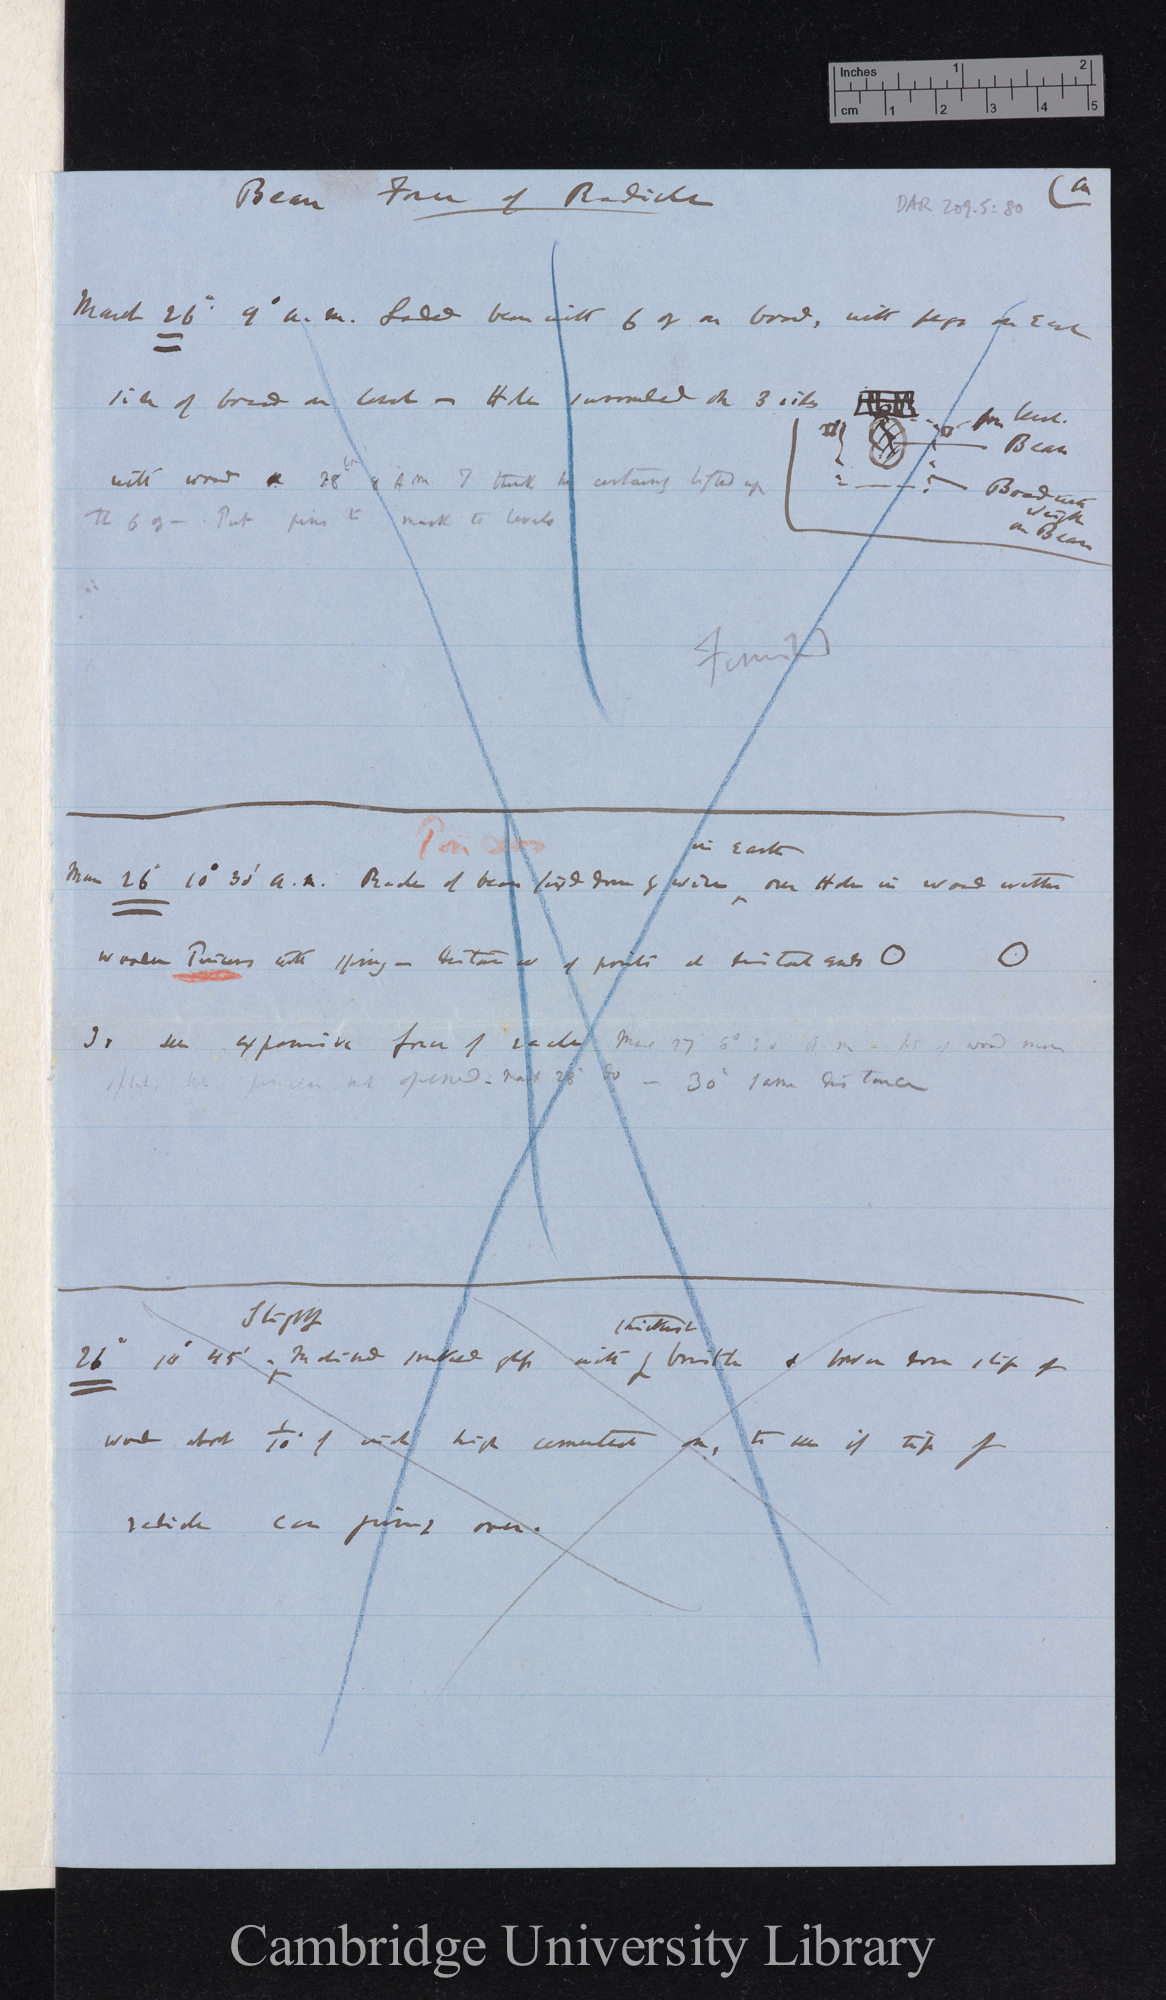 Inches 1 2
cm 1 2 3 4 5
Bean Force of Radicle
(a
DAR 209.5: 80
March 26th 9° a.m. Loaded bean with 6 oz on board, with pegs on Each
side of board on level — Hole surrounded on 3 sides
with wood 28th 8 A m I think has certainly lifted up
The 6 oz — Put pins to mark to levels
for level.
Bean
Board with
weight
on Bean
Finished
Pincers
in Earth
Mar 26 10° 30' a.m. Radicle of bean fixed down by wires over Hole in wood within
wooden Pincers with spring — distance of points at distant ends O O
To see expansive force of radicle Mar 27 8° 20' a.m — bit of wood more
split, but pincers not opened. March 28 — 30' same distance
Slightly
thickest
26th 10° 45' Inclined smoked glass with bristle & low down slip of
wood about 1/10 of inch high cemented on, to see if tip of
radicle can spring over.
Cambridge University Library